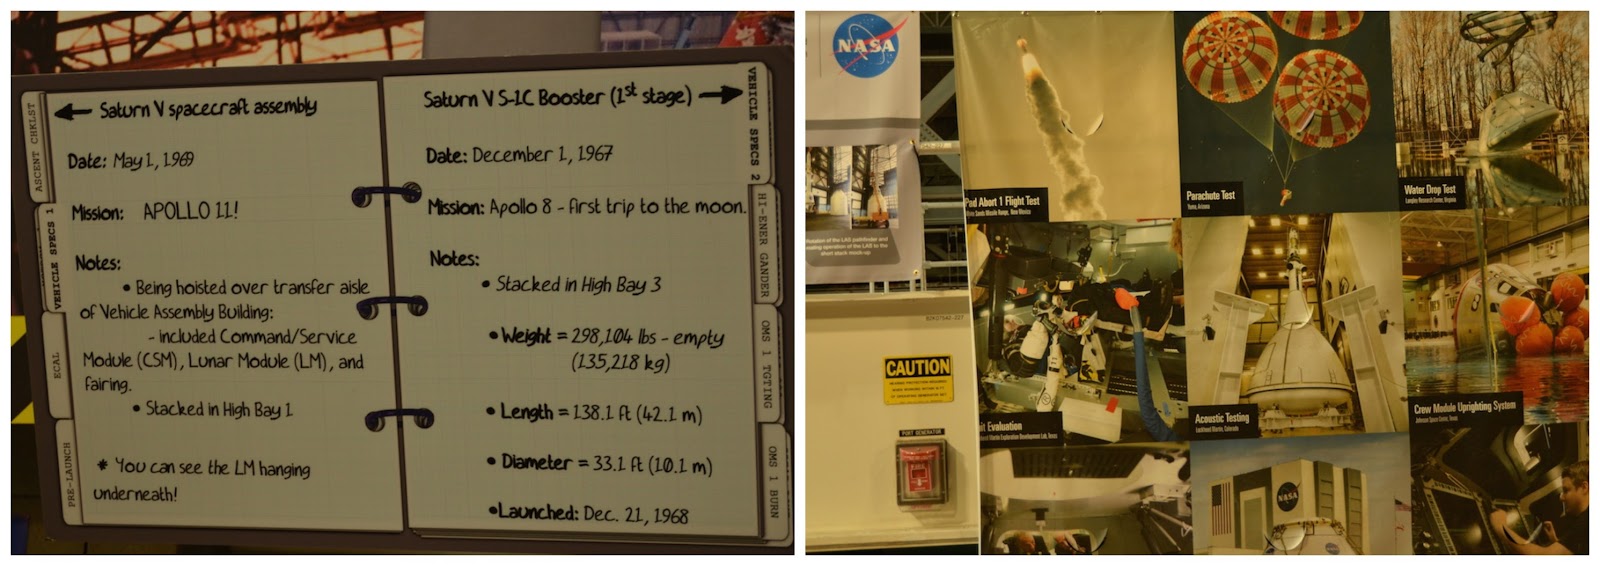 Saturn V spacecraft assembly
Date: May 1, 1969
Mission: APOLLO 11!
Notes:
• Being hoisted over transfer aisle
of Vehicle Assembly Building:
- included Command/Service
Module (CSM), Lunar Module (LM), and
fairing.
• Stacked in High Bay 1
* You can see the LM hanging
underneath!
ASCENT CHKLST
VEHICLE SPECS 1
ECAL
PRE-LAUNCH
Saturn V S-1C Booster (1st stage)
Date: December 1, 1967
Mission: Apollo 8 - first trip to the moon.
Notes:
• Stacked in High Bay 3
• Weight = 298,104 lbs - empty
(135,218 kg)
• Length = 138.1 ft (42.1 m)
• Diameter = 33.1 ft (10.1 m)
• Launched: Dec. 21, 1968
VEHICLE SPECS 2
HI-ENER GANDER
OMS 1 TGTING
OMS 1 BURN
NASA
of the LAS pathfinder and
operation of the LAS to the
short stack mock-up
CAUTION
PORT GENERATOR
Pad Abort 1 Flight Test
White Sands Missile Range, New Mexico
Parachute Test
Yuma, Arizona
Water Drop Test
Langley Research Center, Virginia
Evaluation
Exploration Development Lab, Texas
Acoustic Testing
Lockheed Martin, Colorado
Crew Module Uprighting System
Johnson Space Center, Texas
NASA